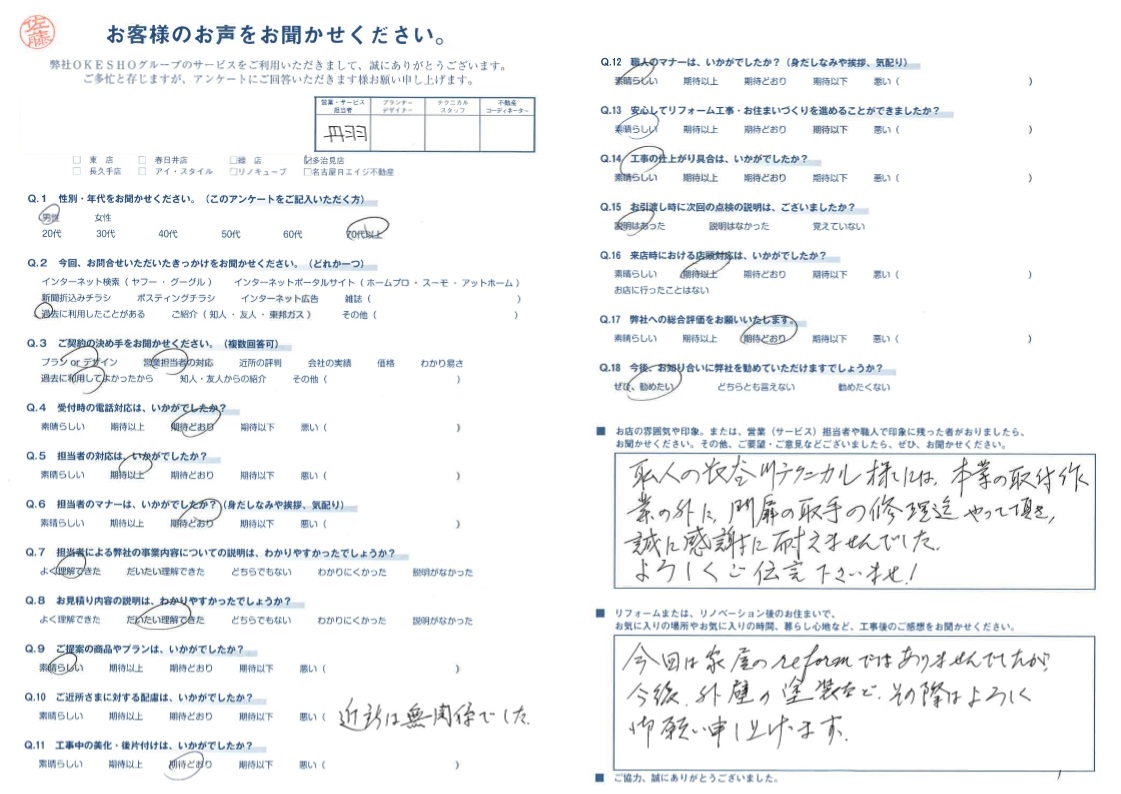 佐藤
お客様のお声をお聞かせください。
弊社OKESHOグループのサービスをご利用いただきまして、誠にありがとうございます。
ご多忙と存じますが、アンケートにご回答いただきます様お願い申し上げます。
営業・サービス担当者 プランナーデザイナー テクニカルスタッフ 不動産コーディネーター
丹羽
□ 東 店 □ 春日井店 □緑 店 ☑多治見店
□ 長久手店 □ アイ・スタイル □リノキューブ □名古屋Rエイジ不動産
Q.1 性別・年代をお聞かせください。（このアンケートをご記入いただく方）
男性 女性
20代 30代 40代 50代 60代 70代以上
Q.2 今回、お問合せいただいたきっかけをお聞かせください。（どれか一つ）
インターネット検索（ ヤフー ・ グーグル ） インターネットポータルサイト（ ホームプロ ・ スーモ ・ アットホーム ）
新聞折込みチラシ ポスティングチラシ インターネット広告 雑誌（ ）
過去に利用したことがある ご紹介（ 知人 ・ 友人 ・ 東邦ガス ） その他（ ）
Q.3 ご契約の決め手をお聞かせください。（複数回答可）
プラン or デザイン 営業担当者の対応 近所の評判 会社の実績 価格 わかり易さ
過去に利用してよかったから 知人・友人からの紹介 その他（ ）
Q.4 受付時の電話対応は、いかがでしたか？
素晴らしい 期待以上 期待どおり 期待以下 悪い（ ）
Q.5 担当者の対応は、いかがでしたか？
素晴らしい 期待以上 期待どおり 期待以下 悪い（ ）
Q.6 担当者のマナーは、いかがでしたか？（身だしなみや挨拶、気配り）
素晴らしい 期待以上 期待どおり 期待以下 悪い（ ）
Q.7 担当者による弊社の事業内容についての説明は、わかりやすかったでしょうか？
よく理解できた だいたい理解できた どちらでもない わかりにくかった 説明がなかった
Q.8 お見積り内容の説明は、わかりやすかったでしょうか？
よく理解できた だいたい理解できた どちらでもない わかりにくかった 説明がなかった
Q.9 ご提案の商品やプランは、いかがでしたか？
素晴らしい 期待以上 期待どおり 期待以下 悪い（ ）
Q.10 ご近所さまに対する配慮は、いかがでしたか？
素晴らしい 期待以上 期待どおり 期待以下 悪い（ 近所は無関係でした.
Q.11 工事中の美化・後片付けは、いかがでしたか？
素晴らしい 期待以上 期待どおり 期待以下 悪い（ ）
Q.12 職人のマナーは、いかがでしたか？（身だしなみや挨拶、気配り）
素晴らしい 期待以上 期待どおり 期待以下 悪い（ ）
Q.13 安心してリフォーム工事・お住まいづくりを進めることができましたか？
素晴らしい 期待以上 期待どおり 期待以下 悪い（ ）
Q.14 工事の仕上がり具合は、いかがでしたか？
素晴らしい 期待以上 期待どおり 期待以下 悪い（ ）
Q.15 お引渡し時に次回の点検の説明は、ございましたか？
説明はあった 説明はなかった 覚えていない
Q.16 来店時における店頭対応は、いかがでしたか？
素晴らしい 期待以上 期待どおり 期待以下 悪い（ ）
お店に行ったことはない
Q.17 弊社への総合評価をお願いいたします。
素晴らしい 期待以上 期待どおり 期待以下 悪い（ ）
Q.18 今後、お知り合いに弊社を勧めていただけますでしょうか？
ぜひ、勧めたい どちらとも言えない 勧めたくない
■ お店の雰囲気や印象。または、営業（サービス）担当者や職人で印象に残った者がおりましたら、
お聞かせください。その他、ご要望・ご意見などございましたら、ぜひ、お聞かせください。
職人の長谷川テクニカル様には、本業の取付作
業の外に、門扉の取手の修理迄やって頂き,
誠に感謝に耐えませんでした.
よろしくご伝言下さいませ!
■ リフォームまたは、リノベーション後のお住まいで、
お気に入りの場所やお気に入りの時間、暮らし心地など、工事後のご感想をお聞かせください。
今回は家屋のreformではありませんでしたが、
今後、外壁の塗装など、その際はよろしく
御願い申し上げます.
■ ご協力、誠にありがとうございました。